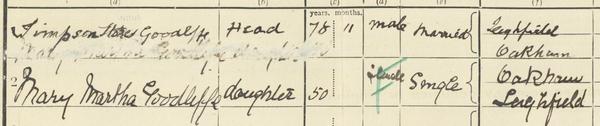 (a) (b) (c) (d) (e) (f)
years. months.
Simpson Goodliffe Head 78 11 male Married Leighfield
Oakham
2 Mary Martha Goodliffe daughter 50 Single Oakham
Leighfield